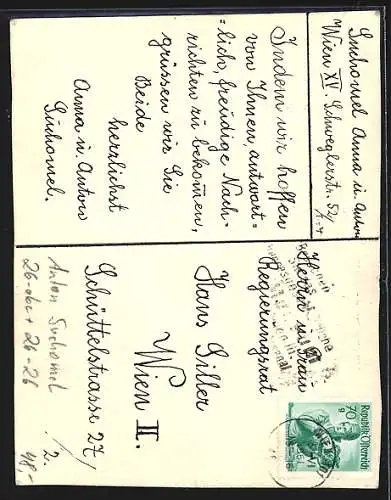 Suchomel Anna u. Anton
Wien XV. Schweglerstr. 52/
Indem wir hoffen
von Ihnen, antwort=
=lich, freudige Nach-
richten zu bekom̅en,
grüssen wir Sie
Beide
herzlichst
Anna u. Anton
Suchomel.
Herrn u. Frau
Regierungsrat
Hans Giller
Wien II.
Schüttelstrasse 27/
/2.
Anton Suchomel
26-26
48,-
70
g
Republik Österreich
WIEN